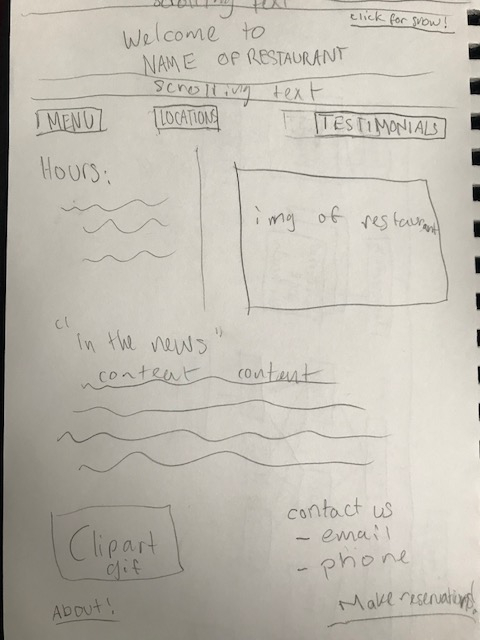 scrolling text
click for snow!
Welcome to
NAME OF RESTAURANT
scrolling text
MENU LOCATIONS TESTIMONIALS
Hours:
img of restaurant
"in the news"
content content
Clipart
gif
contact us
- email
- phone
About!
Make reservations!